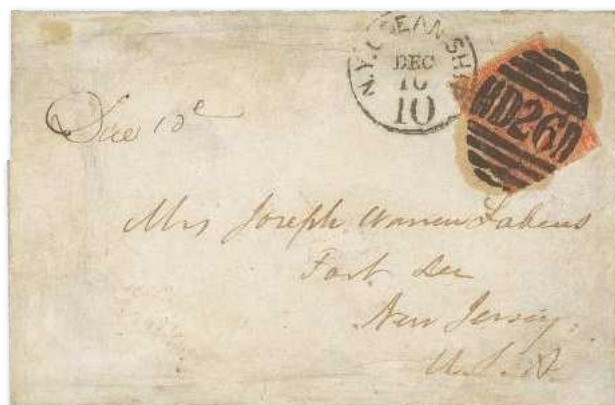 N.Y. OCEAN SH
DEC
10
10
D26D
Due 10c
Mrs Joseph Warren Fabens
Fort Lee
New Jersey.
U.S.A.